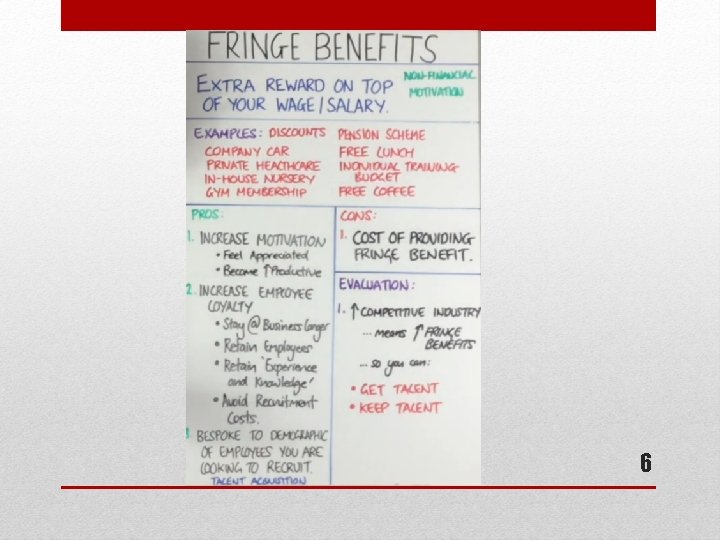 FRINGE BENEFITS
EXTRA REWARD ON TOP
OF YOUR WAGE/SALARY.
NON-FINANCIAL
MOTIVATION
EXAMPLES: DISCOUNTS
COMPANY CAR
PRIVATE HEALTHCARE
IN-HOUSE NURSERY
GYM MEMBERSHIP
PENSION SCHEME
FREE LUNCH
INDIVIDUAL TRAINING
BUDGET
FREE COFFEE
PROS:
1. INCREASE MOTIVATION
• Feel Appreciated
• Become ↑ Productive
2. INCREASE EMPLOYEE
LOYALTY
• Stay @ Business longer
• Retain Employees
• Retain 'Experience
and Knowledge'
• Avoid Recruitment
Costs.
3 BESPOKE TO DEMOGRAPHIC
OF EMPLOYEES YOU ARE
LOOKING TO RECRUIT.
TALENT ACQUISITION
CONS:
1. COST OF PROVIDING
FRINGE BENEFIT.
EVALUATION:
1. ↑ COMPETITIVE INDUSTRY
... means ↑ FRINGE
BENEFITS
... so you can:
• GET TALENT
• KEEP TALENT
6